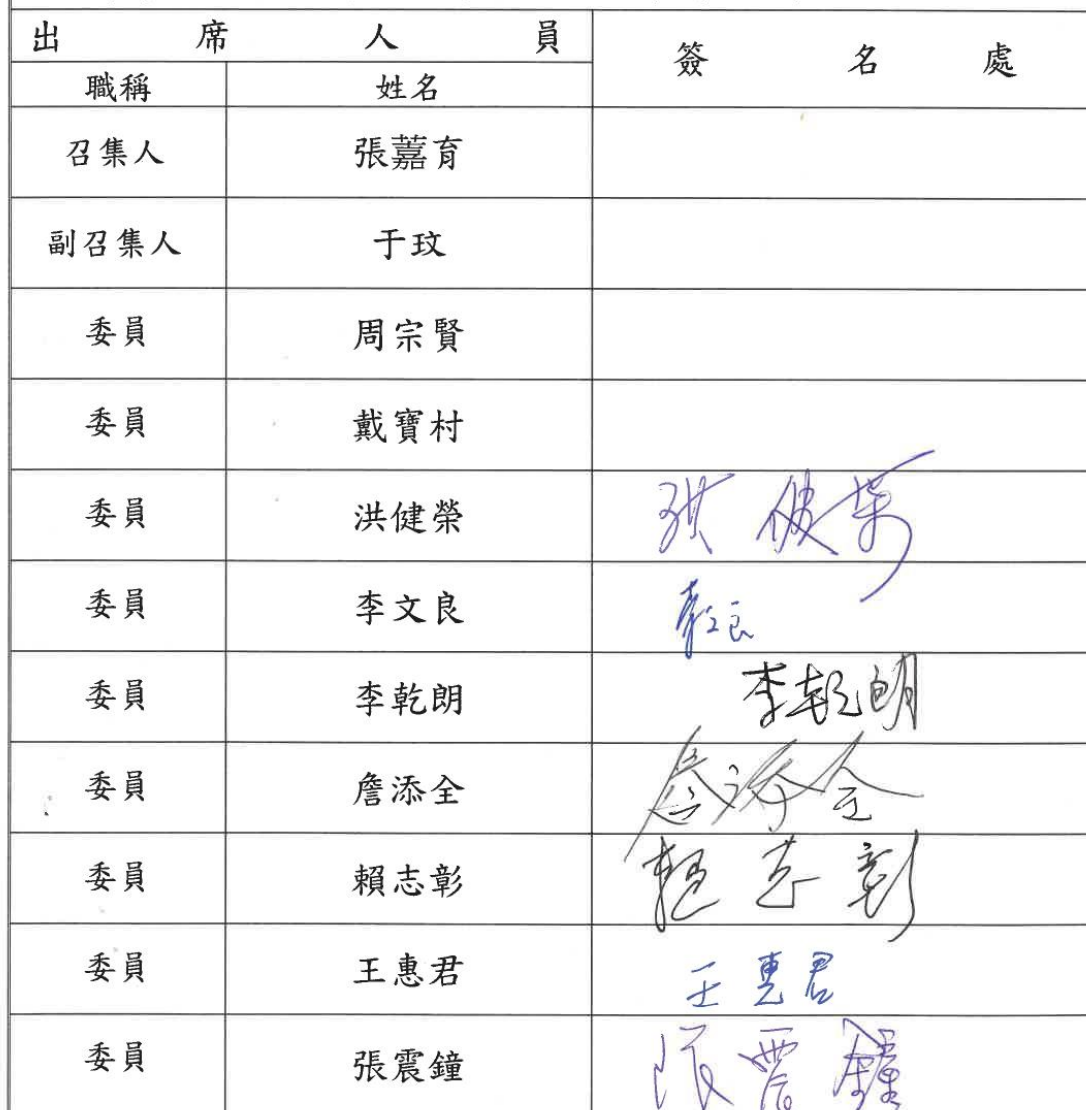 出席人員 簽名處
職稱 姓名
召集人 張嘉育
副召集人 于玟
委員 周宗賢
委員 戴寶村
委員 洪健榮 洪健榮
委員 李文良 李文良
委員 李乾朗 李乾朗
委員 詹添全 詹添全
委員 賴志彰 賴志彰
委員 王惠君 王惠君
委員 張震鐘 張震鐘